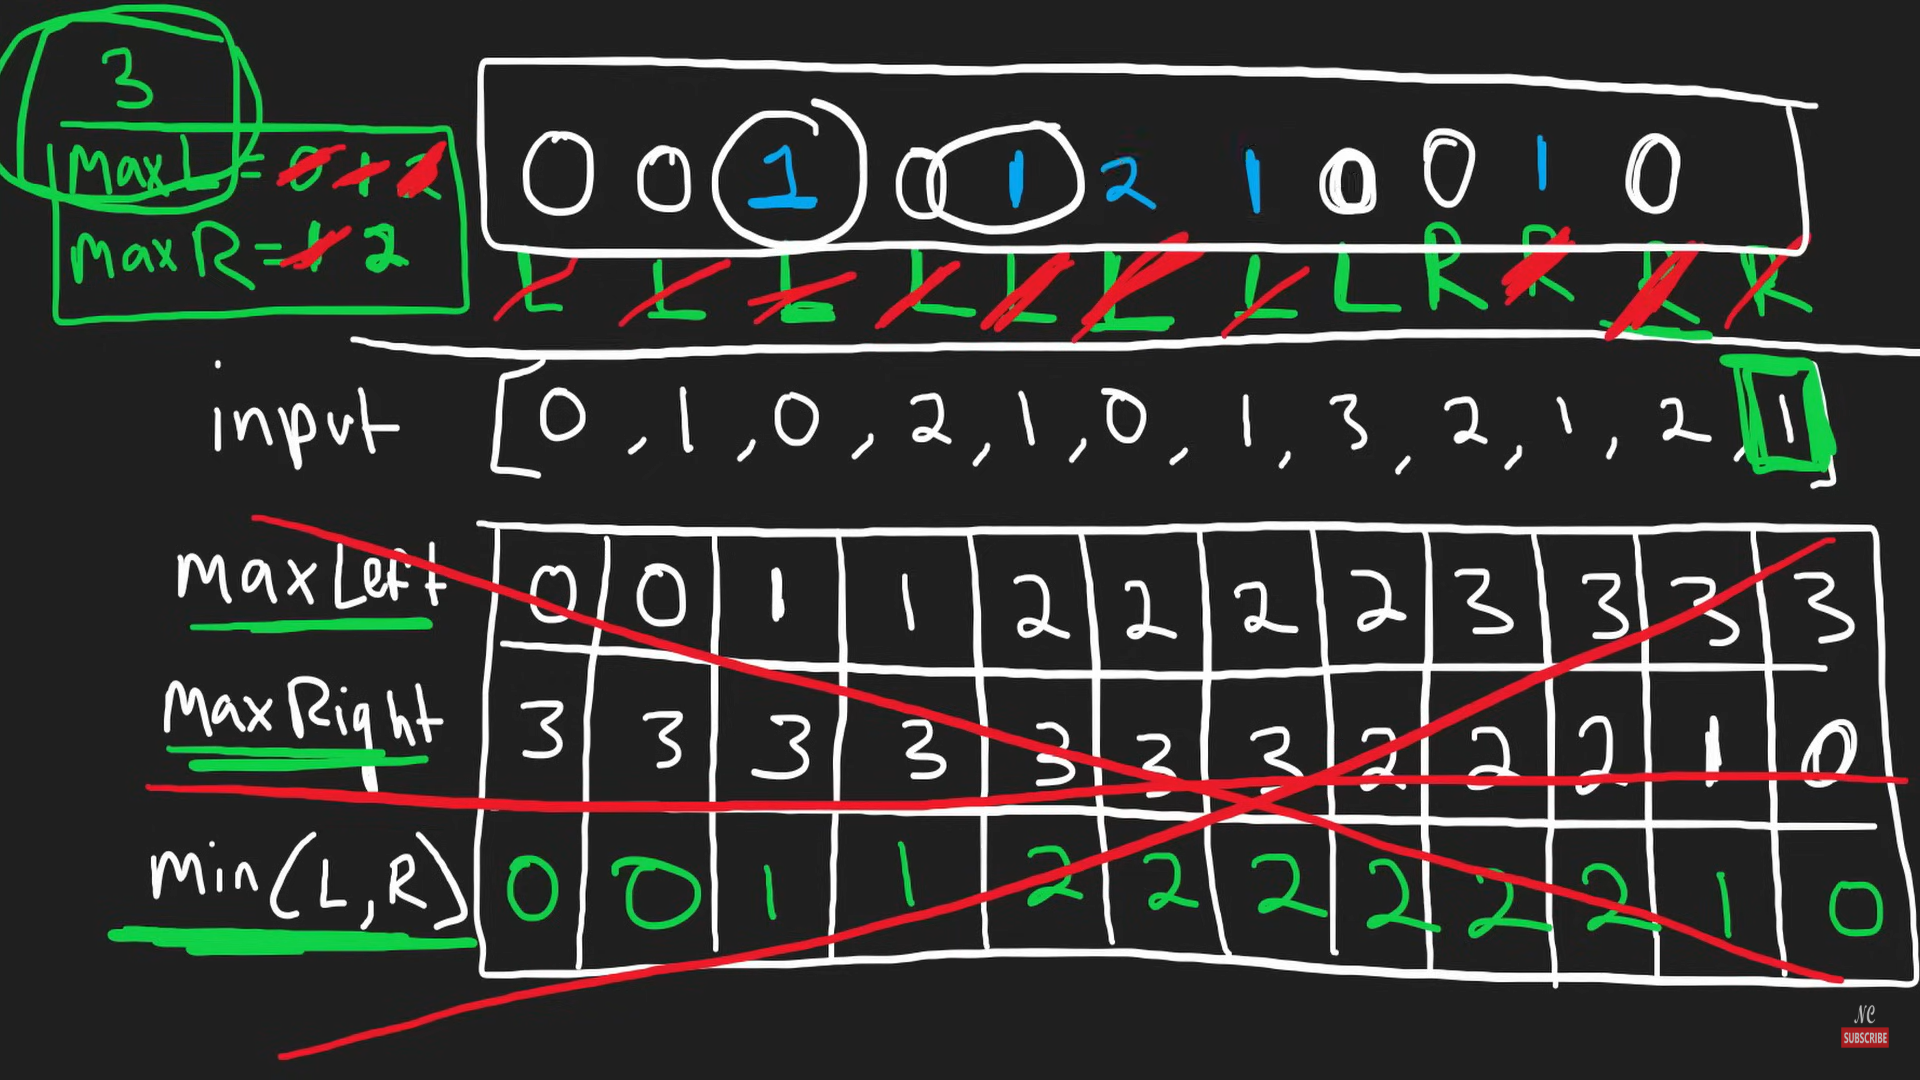 3
maxL = 0 1 2
maxR = 1 2
0 0 1 0 1 2 1 0 0 1 0
L L L L L L L L R R R R
input [0, 1, 0, 2, 1, 0, 1, 3, 2, 1, 2, 1]
maxLeft 0 0 1 1 2 2 2 2 3 3 3 3
maxRight 3 3 3 3 3 3 3 2 2 2 1 0
min(L,R) 0 0 1 1 2 2 2 2 2 2 1 0
NC
SUBSCRIBE